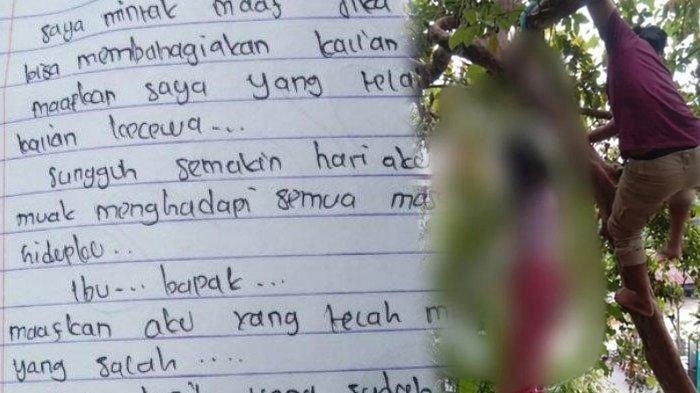 saya mintak maaf jika
bisa membahagiakan kalian
maafkan saya yang
kalian kecewa...
sungguh semakin hari aku
muak menghadapi semua
hidupku..
Ibu... bapak...
maafkan aku yang telah
yang salah .....
yang